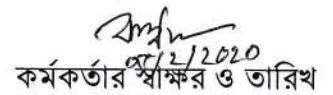 ০৫/2/2020
কর্মকর্তার স্বাক্ষর ও তারিখ